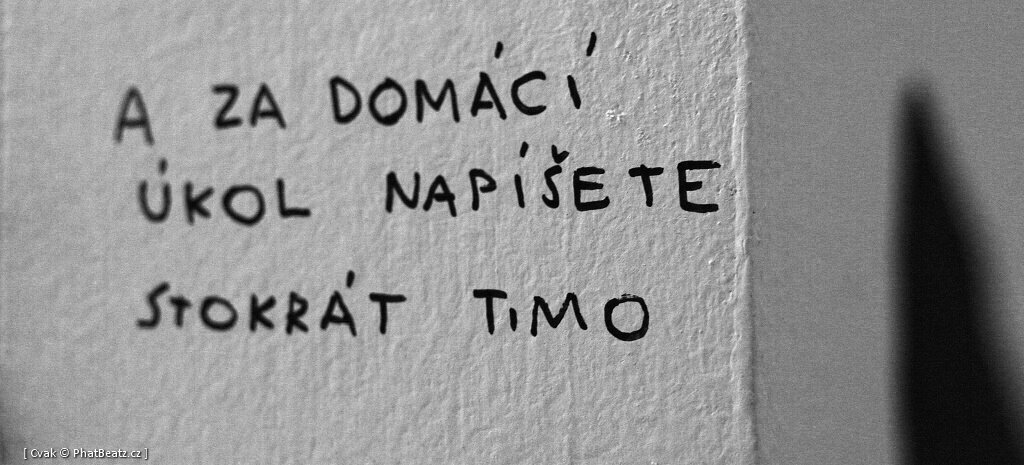 A ZA DOMÁCÍ
ÚKOL NAPÍŠETE
STOKRÁT TiMO
[ Cvak © PhatBeatz.cz ]